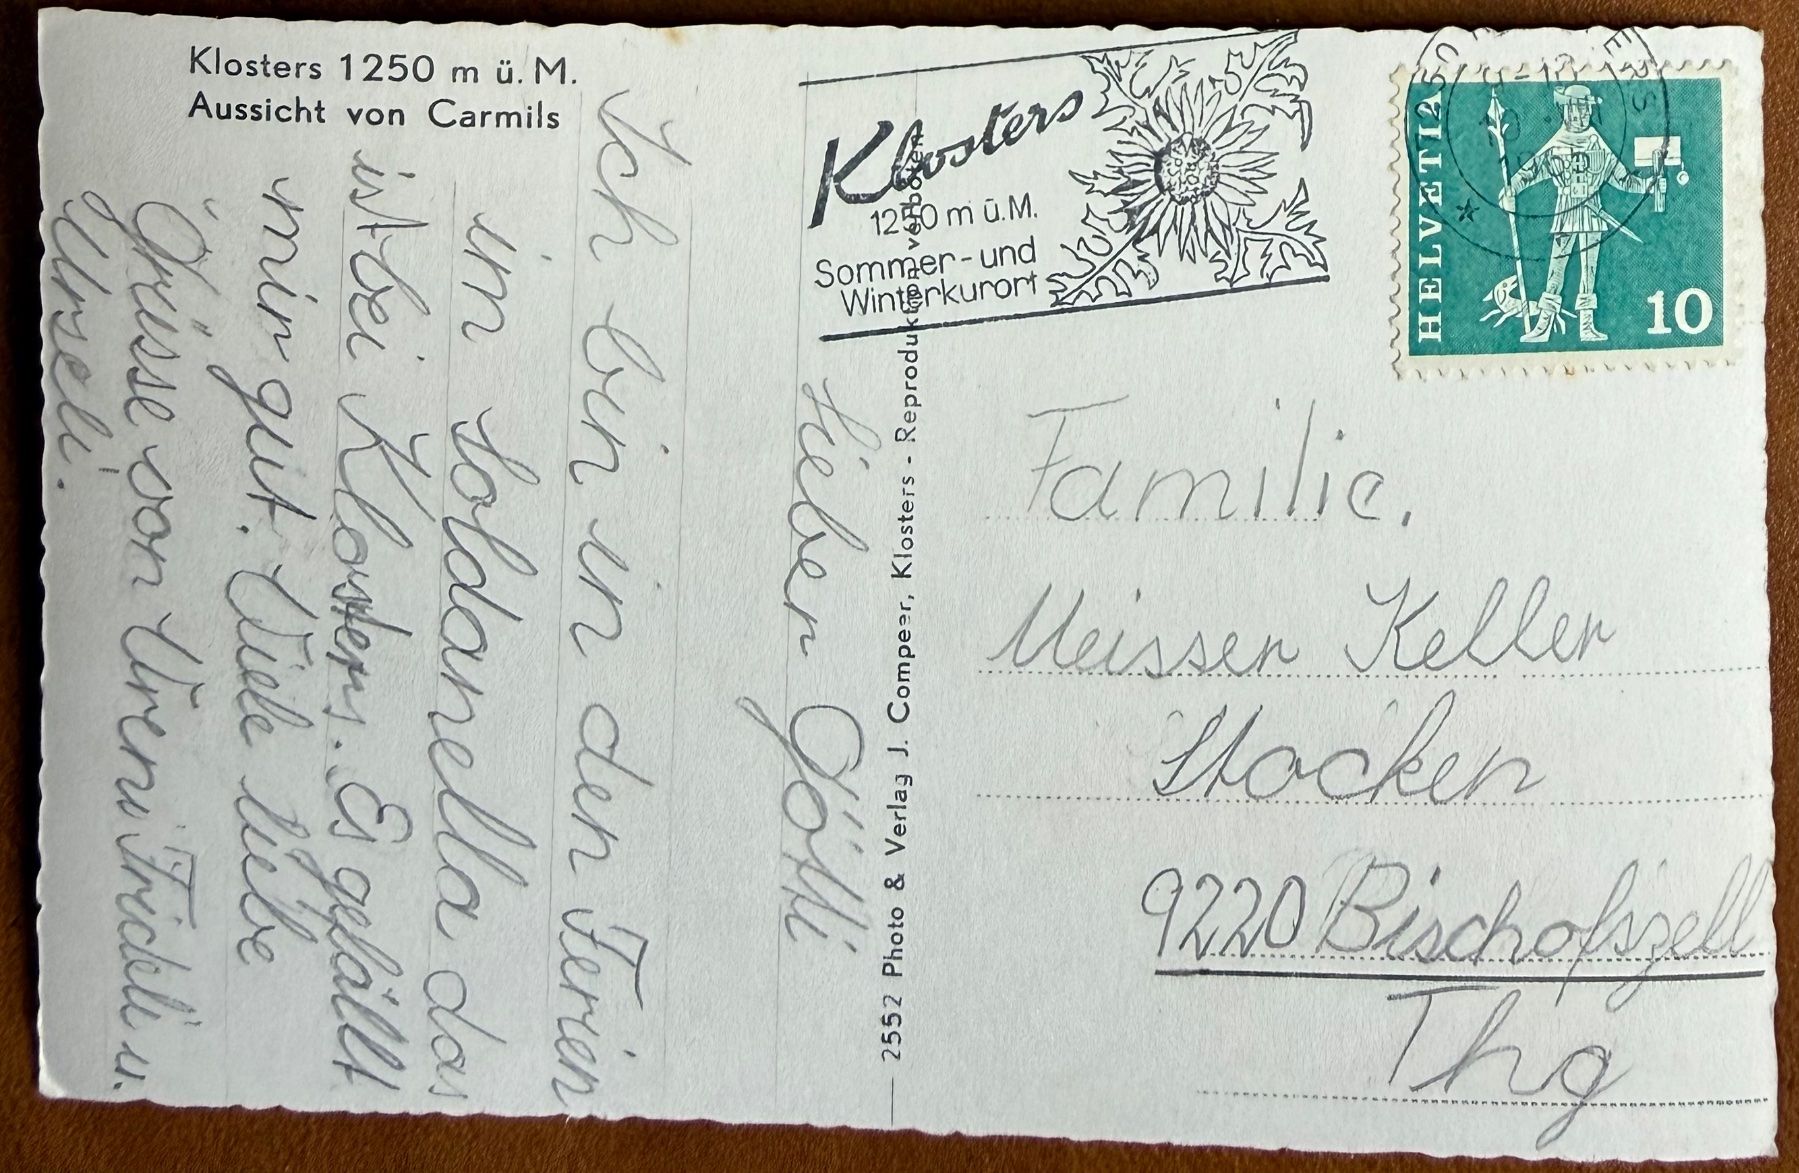 Klosters 1250 m ü. M.
Aussicht von Carmils
Lieber Götti
Ich bin in den Ferien
im Soldanella das
ist bei Klosters. Es gefällt
mir gut. Viele liebe
Grüsse von Vreni Frideli u.
Urseli.
25552 Photo & Verlag J. Compeer, Klosters - Reproduktion verboten
Klosters
1250 m ü.M.
Sommer-und
Winterkurort
HELVETIA
10
Familie.
Meisser Keller
Stocken
9220 Bischofszell
Thg